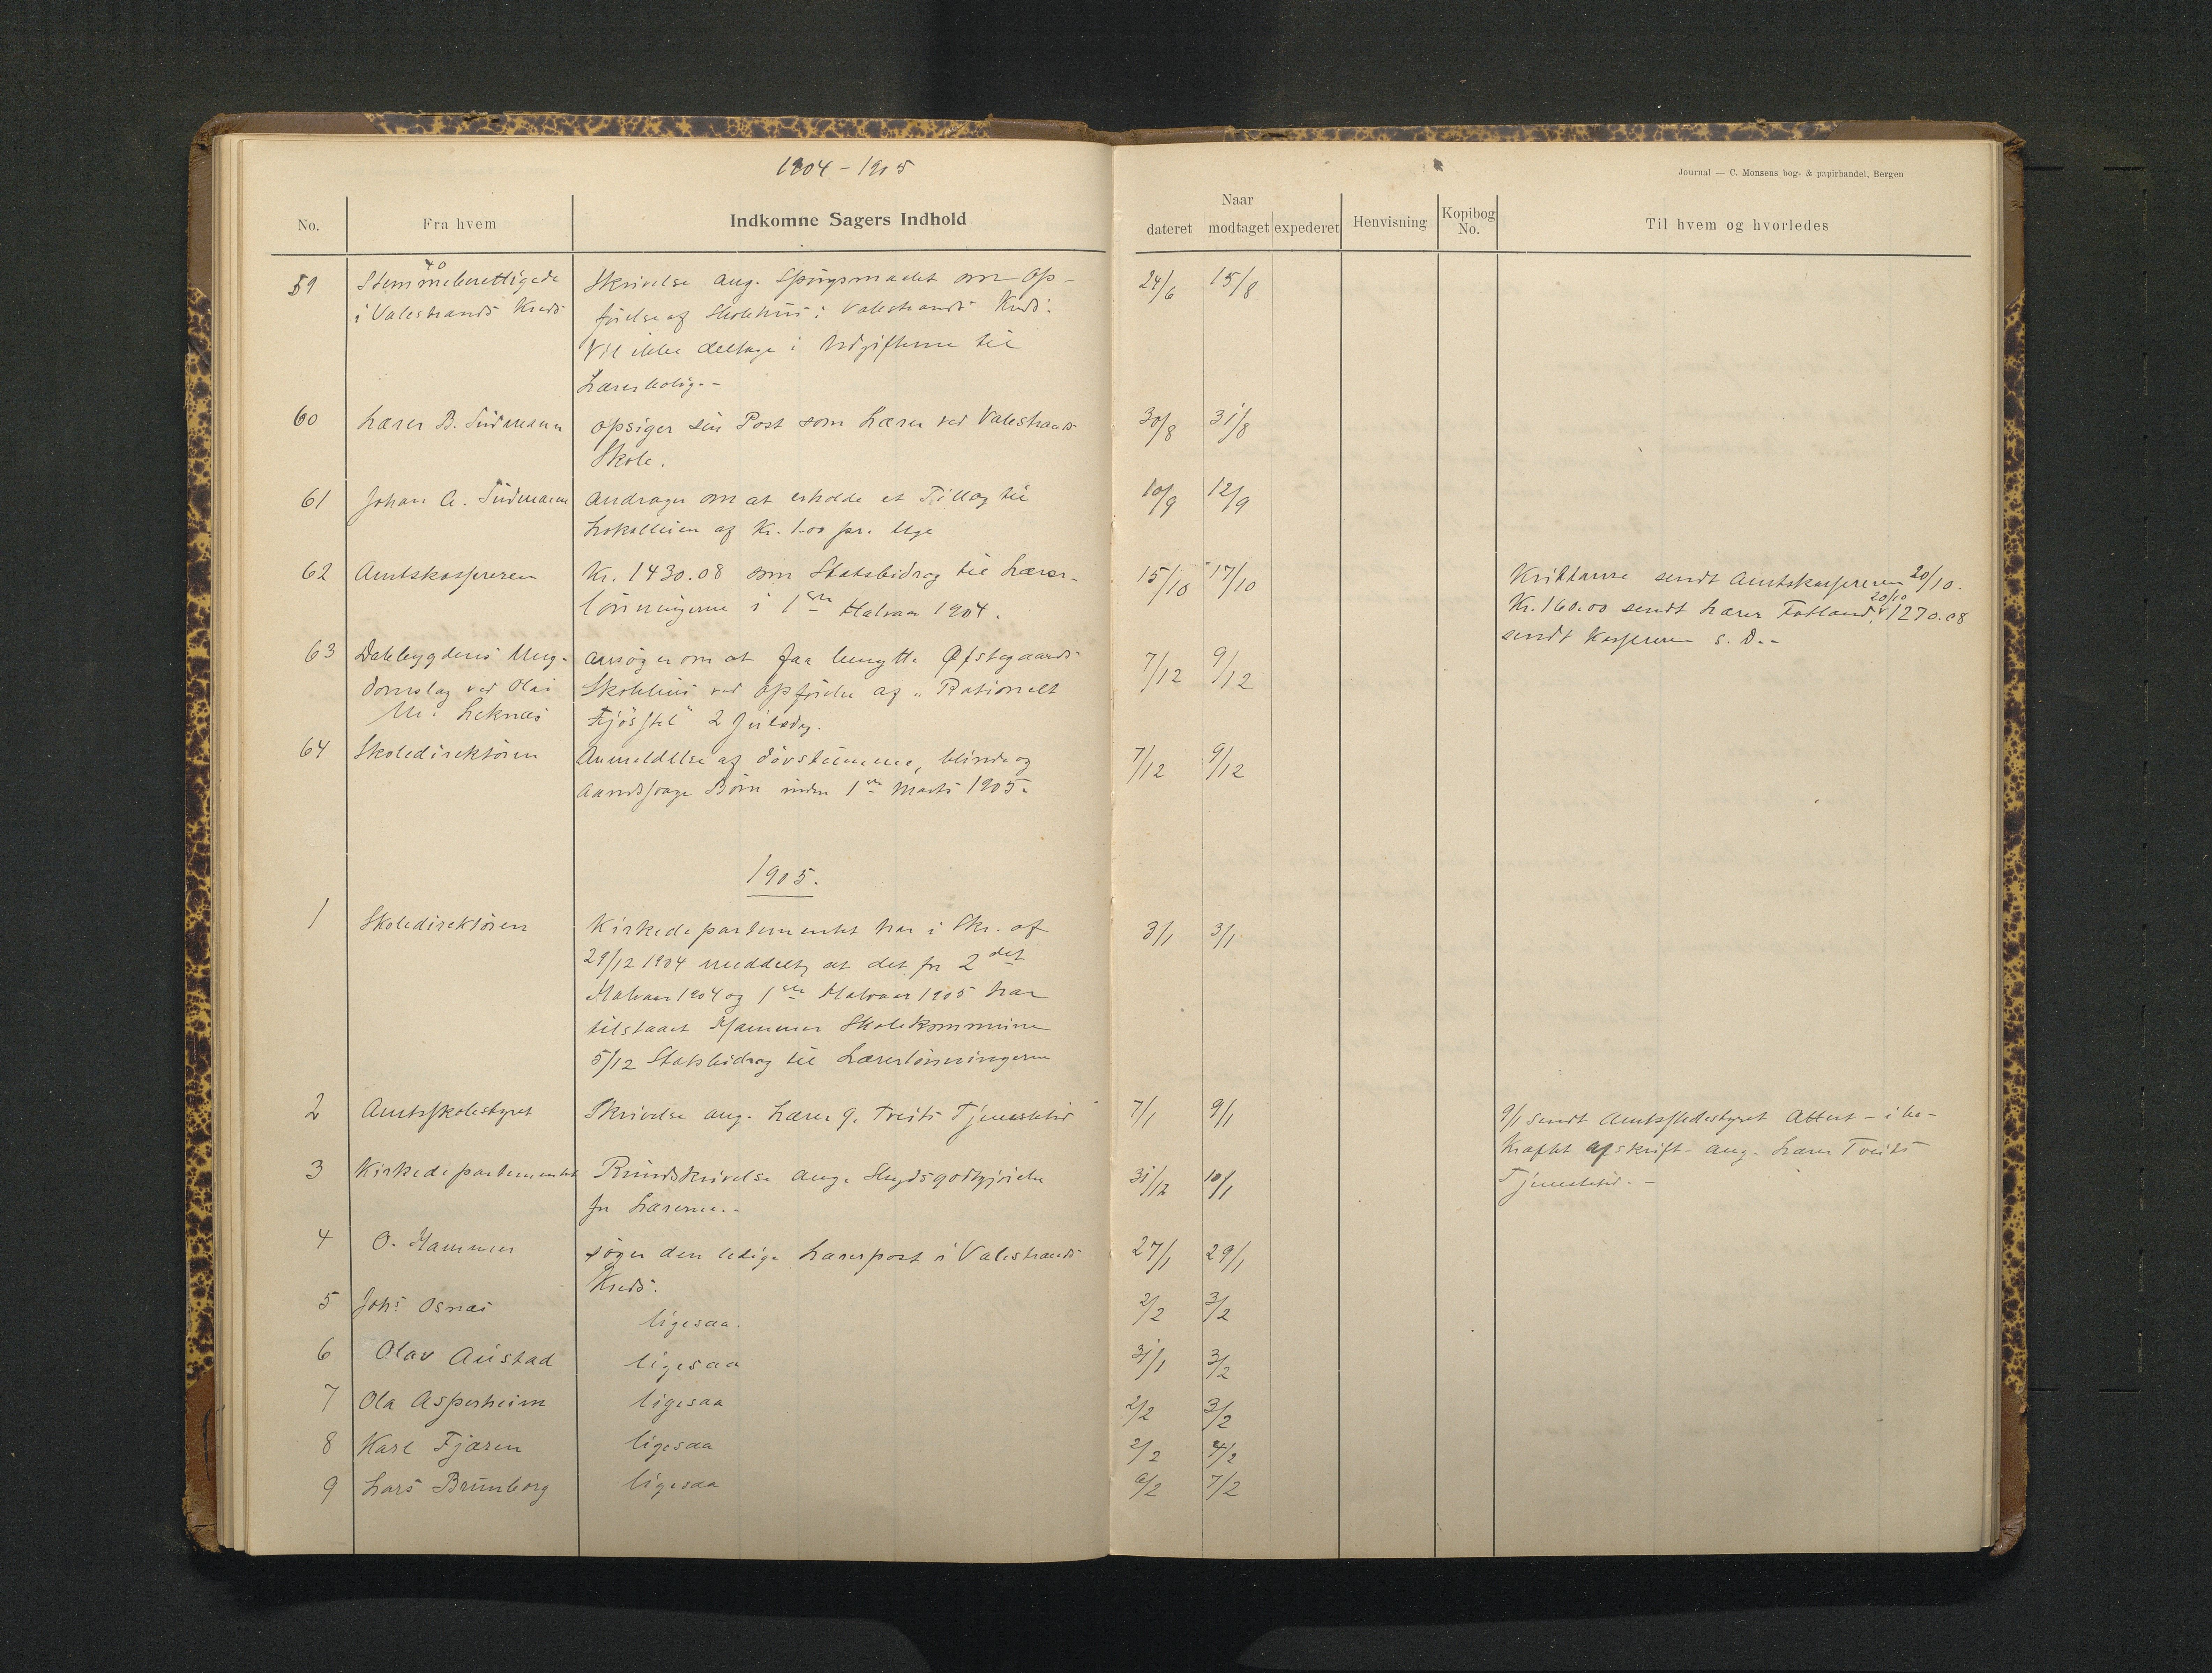 1904 - 1905
Journal — C. Monsens bog- & papirhandel, Bergen
No.
Fra hvem
Indkomne Sagers Indhold
Naar
dateret
modtaget
expederet
Henvisning
Kopibog No.
Til hvem og hvorledes
59
40
Stemmeberettigede
i Valestrands Kreds
Skrivelse ang. Spørgsmaalet om Op-
førelse af Skolehus i Valestrands Kreds:
Vil ikke deltage i Udgifterne til
Lærerbolig. -
24/6 15/8
60
Lærer B. Sudmann
opsiger sin Post som Lærer ved Valestrands
Skole.
30/8 31/8
61
Johan A. Sudmann
andrager om at erholde et Tillæg til
Lokalleien af Kr. 1.00 pr. Uge
10/9 12/9
62
Amtskassereren
Kr. 1430.08 som Statsbidrag til Lærer-
lønningerne i 1ste Halvaar 1904.
15/10 17/10
Kvittance sendt Amtskassereren 20/10.
Kr. 160.00 sendt Lærer Fotland 20/10, 1270.08
sendt Kassereren s. D. -
63
Dalebygdens Ung-
domslag ved Olai
M. Leknes
ansøger om at faa benytte Østegaards
Skolehus ved Opførelse af "Rationelt
Fjøsstel" 2 Juledag.
7/12 9/12
64
Skoledirektøren
Anmeldelse af døvstumme, blinde og
Aandssvage Børn inden 1ste Marts 1905.
7/12 9/12
1905.
1
Skoledirektøren
Kirkedepartementet har i Skr. af
29/12 1904 meddelt, at det for 2det
Halvaar 1904 og 1ste Halvaar 1905 har
tilstaaet Hammer Skolekommune
5/12 Statsbidrag til Lærerlønningerne
3/1 3/1
2
Amtsskolestyret
Skrivelse ang. Lærer G. Tveits Tjenestetid
7/1 9/1
9/1 sendt Amtsskolestyret Attest - i be-
kræftet Afskrift - ang. Lærer Tveits
Tjenestetid. -
3
Kirkedepartementet
Rundskrivelse ang. Skydsgodtgjørelse
for Lærerne. -
31/12 10/1
4
O. Hammer
søger den ledige Lærerpost i Valestrands
Kreds.
27/1 29/1
5
Johs Osnes
ligesaa.
2/2 3/2
6
Olav Austad
ligesaa
31/1 3/2
7
Ola Asperheim
ligesaa
2/2 3/2
8
Karl Fjæren
ligesaa
2/2 4/2
9
Lars Brunborg
ligesaa
6/2 7/2